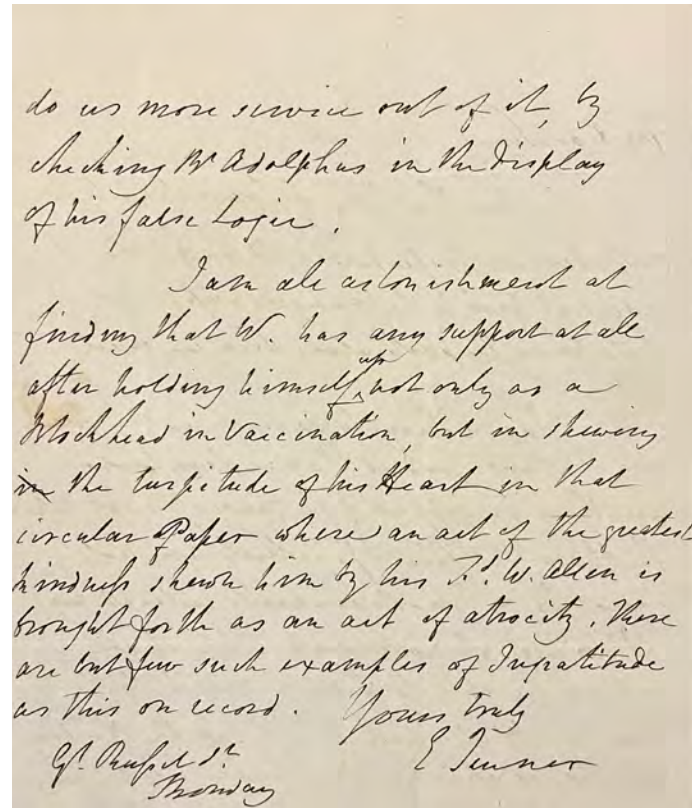 do us more service out of it, by
checking Mr Adolphus in the display
of his false Logic.
I am all astonishment at
finding that W. has any support at all
after holding himself up not only as a
Blockhead in Vaccination, but in shewing
in the turpitude of his Heart in that
circular Paper where an act of the greatest
kindness shewn him by his Fd. W. Allen is
brought forth as an act of atrocity. There
are but few such examples of Ingratitude
as this on record. Yours truly
Gt. Russel St. E Jenner
Monday